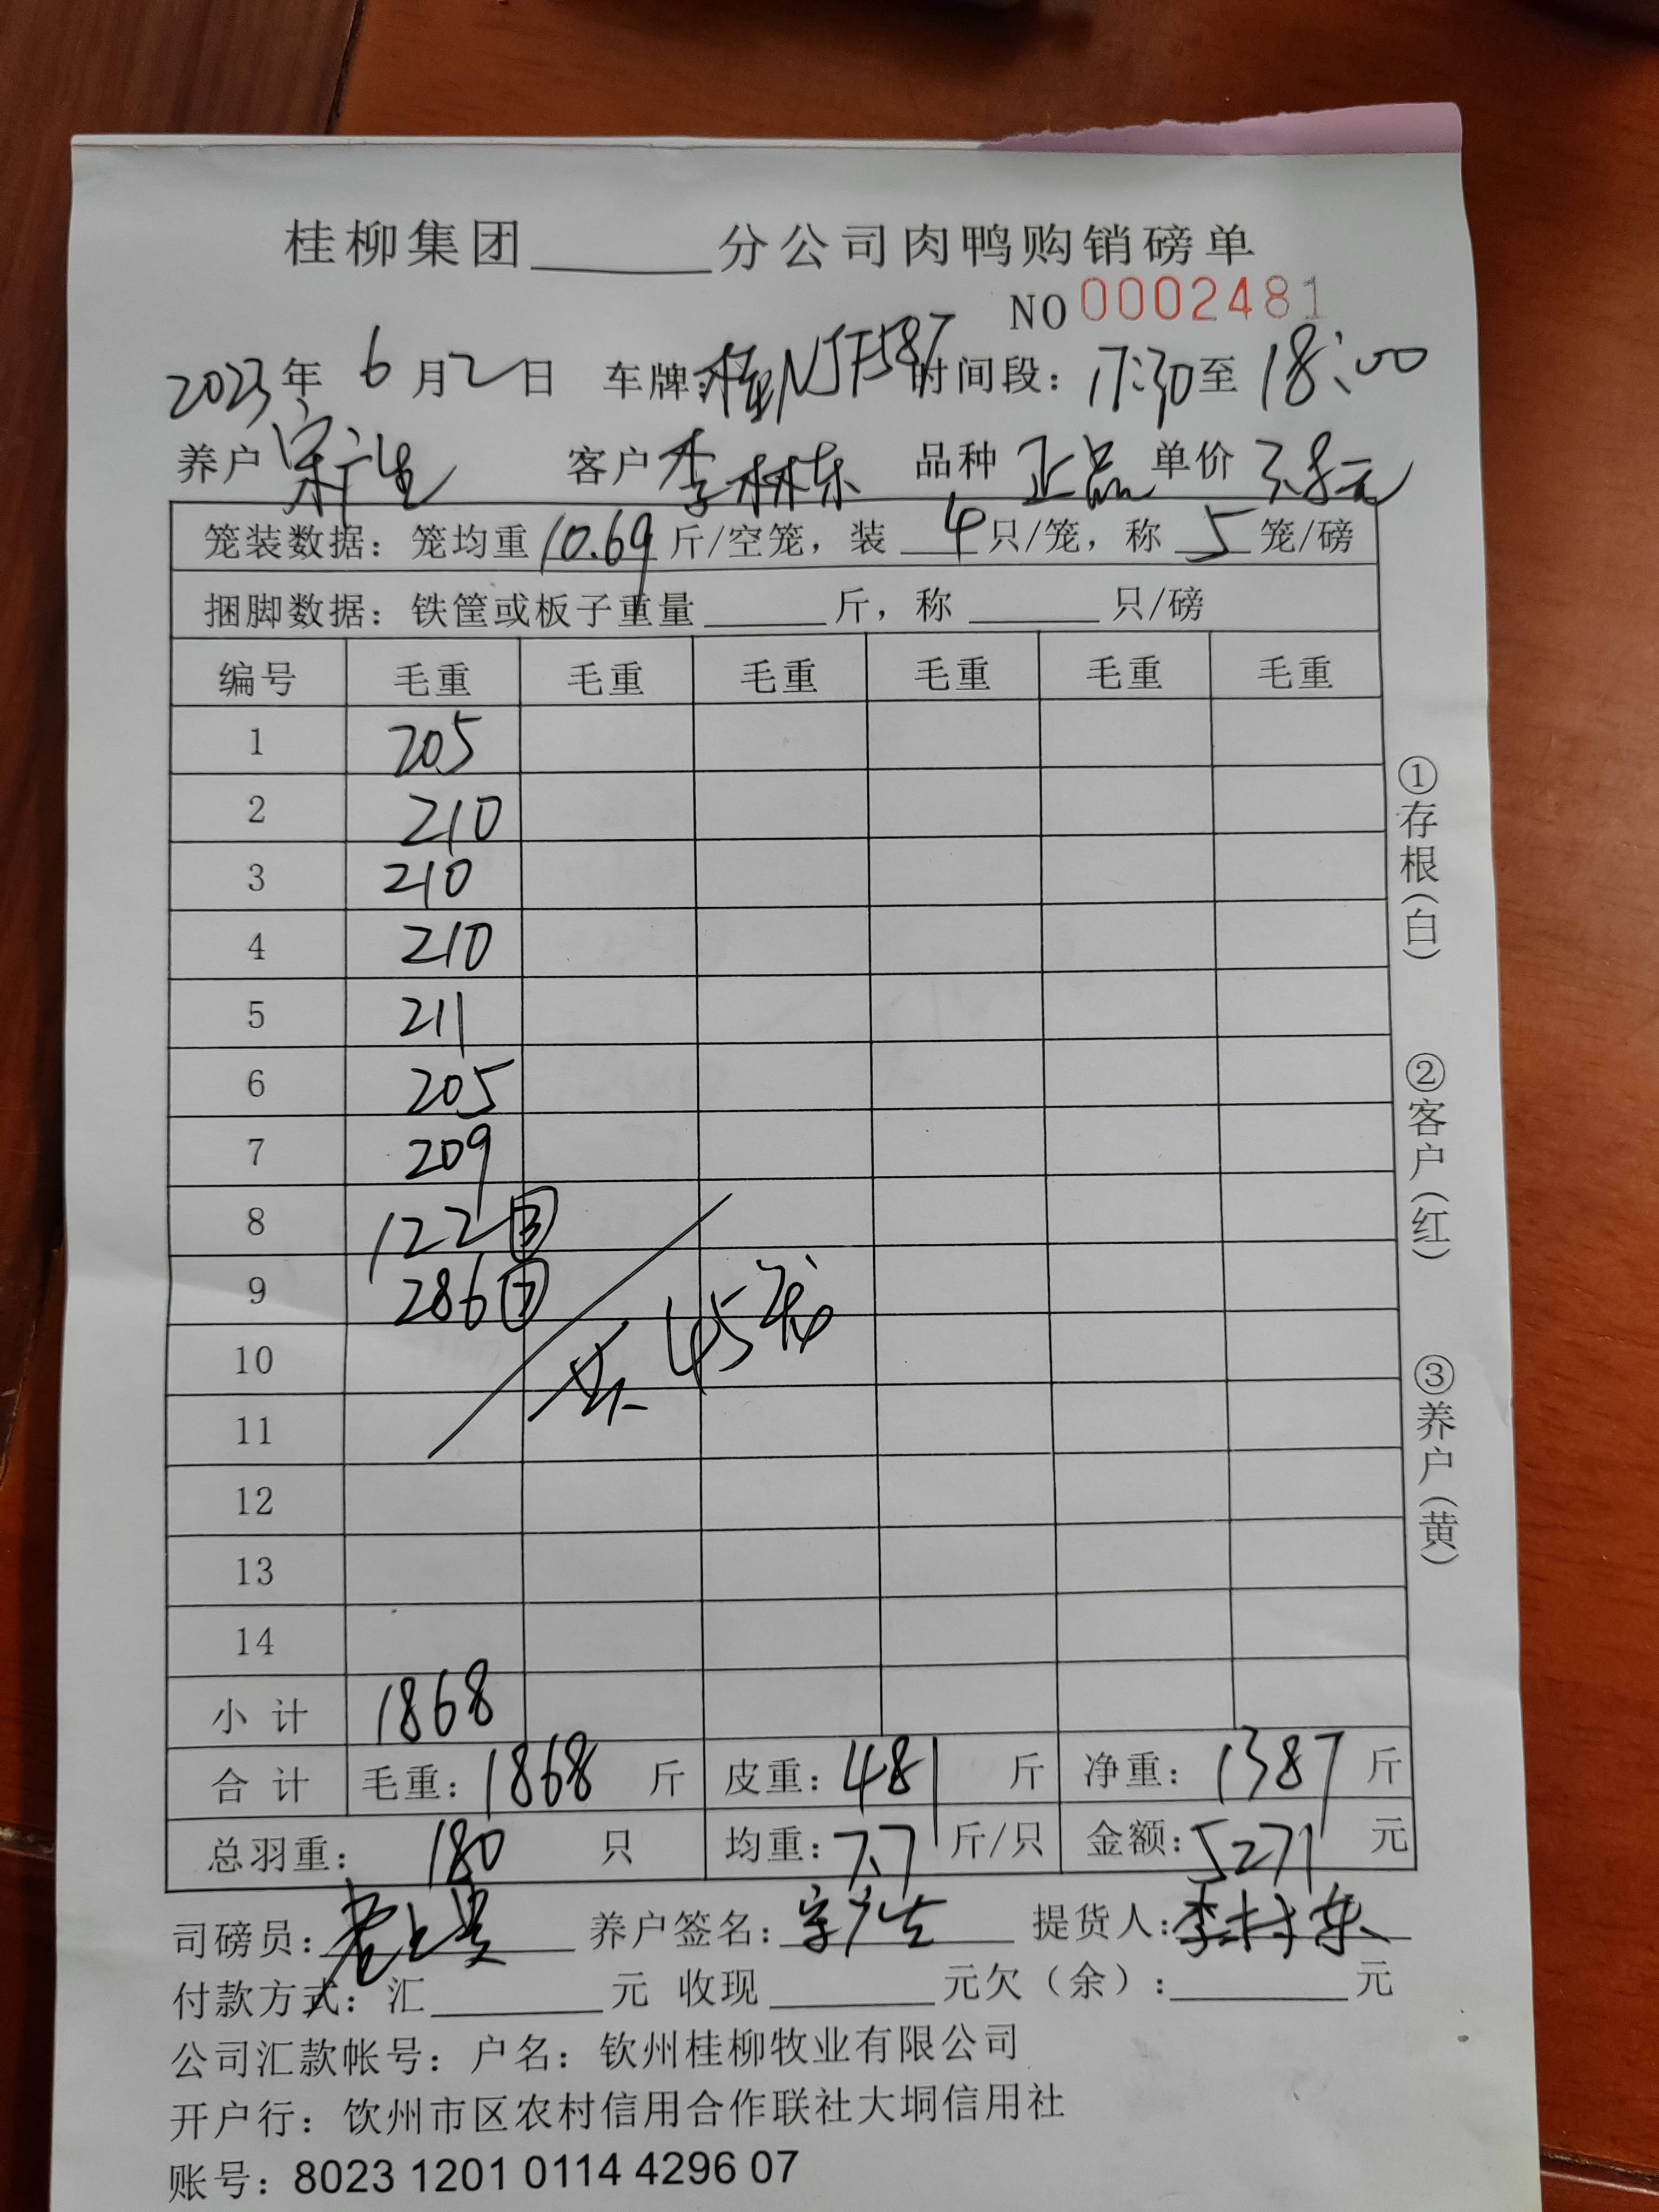 桂柳集团______分公司肉鸭购销磅单
NO 0002481
2023年 6 月 2 日 车牌:桂NJF587 时间段: 17:30 至 18:00
养户 宋广生 客户 李林东 品种 正品 单价 3.8元
笼装数据: 笼均重 10.69 斤/空笼, 装 4 只/笼, 称 5 笼/磅
捆脚数据: 铁筐或板子重量______斤, 称______只/磅
编号 毛重 毛重 毛重 毛重 毛重 毛重
1 205
2 210
3 210
4 210
5 211
6 205
7 209
8 122 ③
9 286 ⑦
10 45
11
12
13
14
小 计 1868
合 计 毛重: 1868 斤 皮重: 481 斤 净重: 1387 斤
总羽重: 180 只 均重: 7.7 斤/只 金额: 5271 元
司磅员: 养户签名: 宋广生 提货人: 李林东
付款方式: 汇______元 收现______元欠(余):______元
公司汇款帐号: 户名: 钦州桂柳牧业有限公司
开户行: 饮州市区农村信用合作联社大垌信用社
账号: 8023 1201 0114 4296 07
①存根(白)
②客户(红)
③养户(黄)